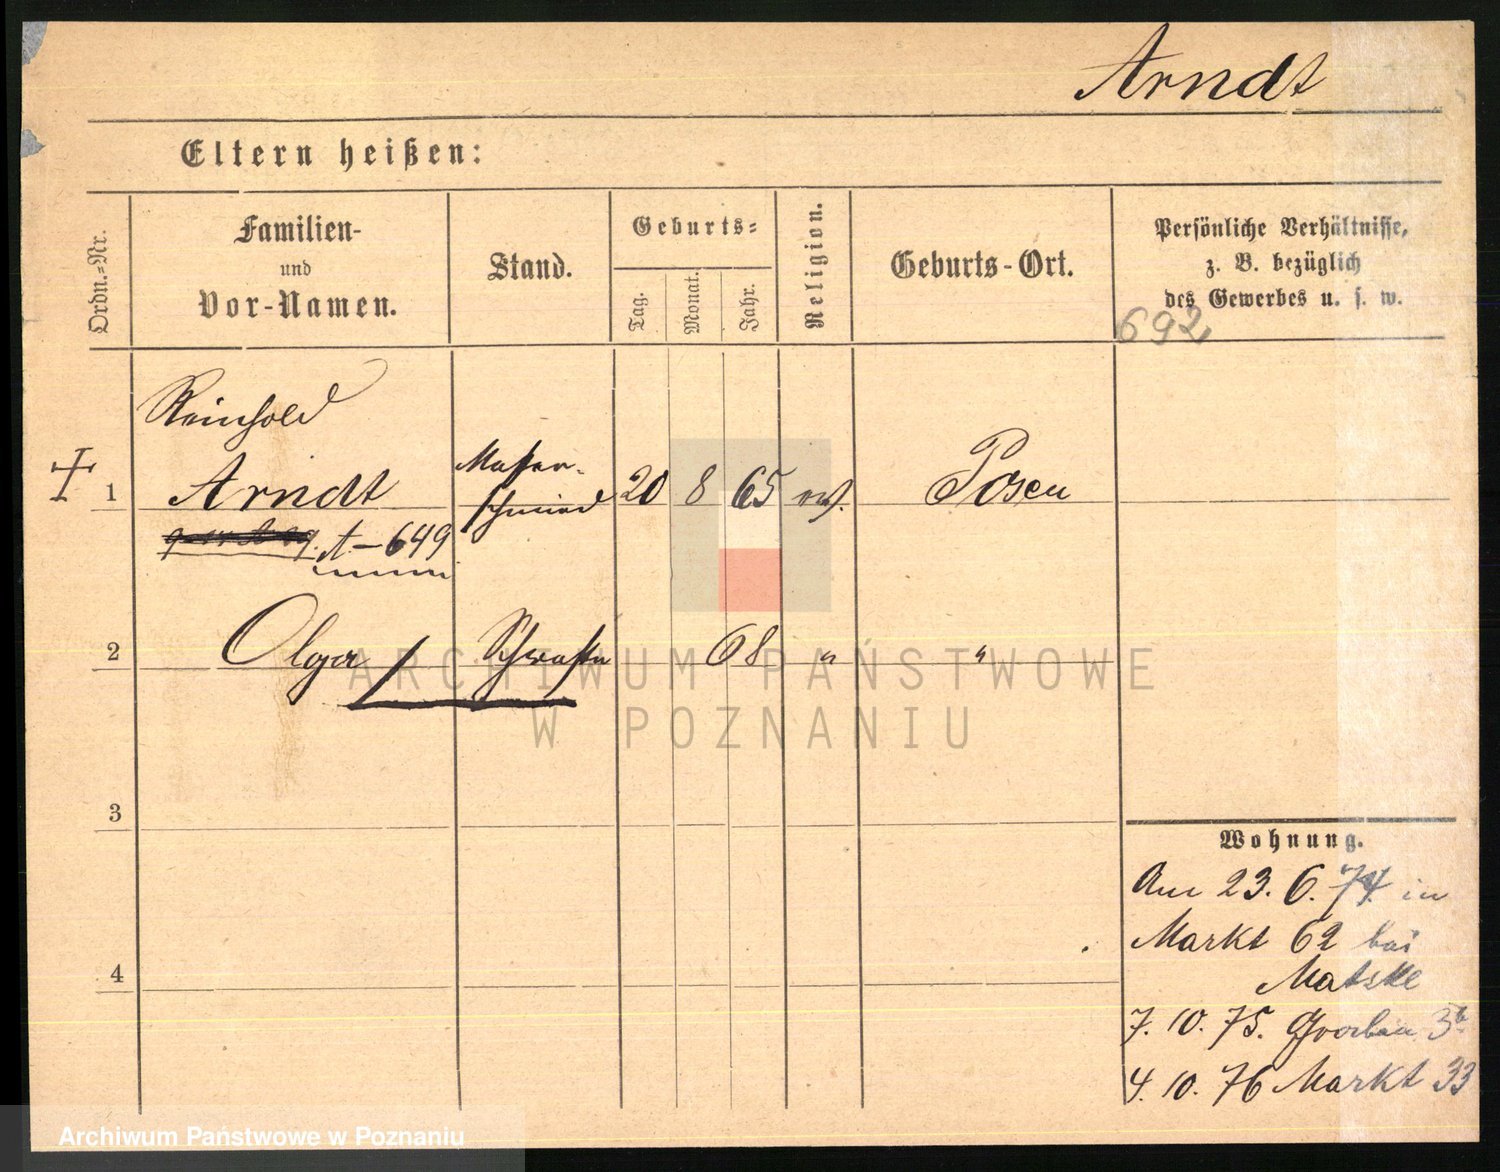 Arndt
Eltern heißen:
Ordn.=Nr.
Familien-
und
Vor-Namen.
Stand.
Geburts=
Tag.
Monat.
Jahr.
Religion.
Geburts-Ort.
Persönliche Verhältnisse,
z. B. bezüglich
des Gewerbes u. s. w.
692
Reinhold
1 Arndt
Messer-
schmied
20 8 65 ev. Posen
A-649
2 Olga Schwester 68 " "
ARCHIWUM PAŃSTWOWE
W POZNANIU
3
Wohnung.
Am 23. 6. 74 in
Markt 62 bei
Matske
4
7. 10. 75. Graben 3b
4. 10. 76 Markt 33
Archiwum Państwowe w Poznaniu